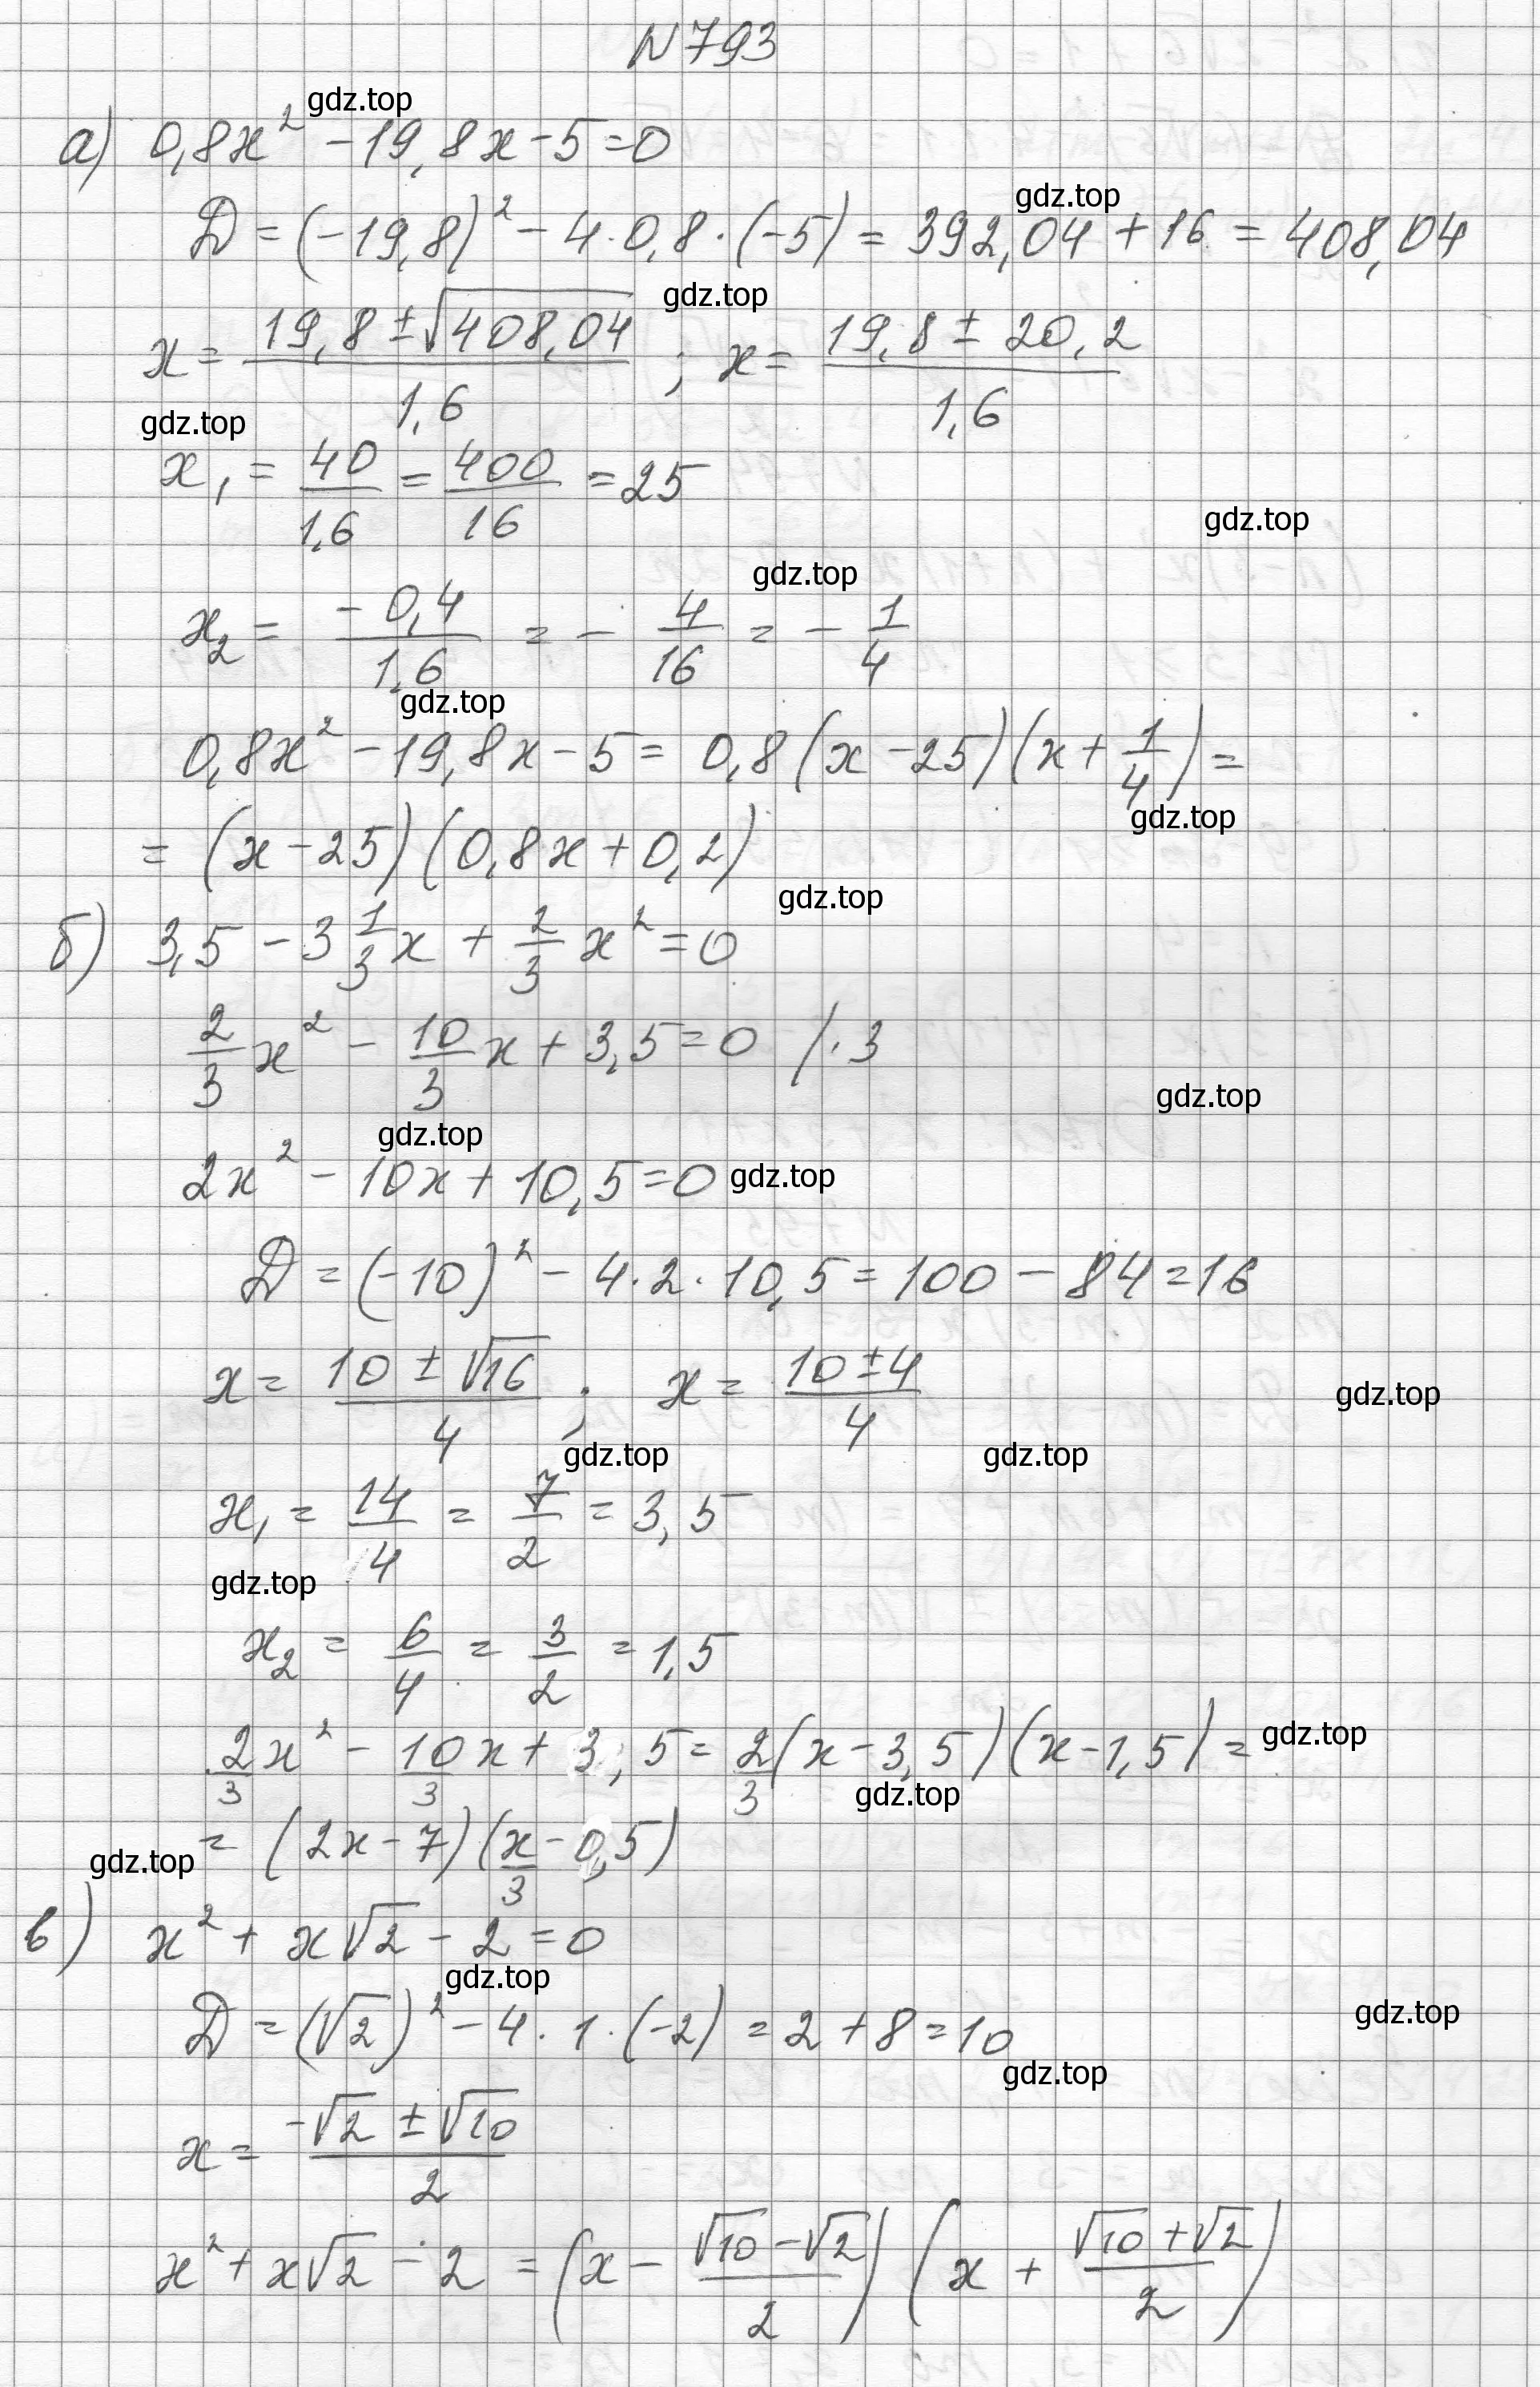 N 793
gdz.top
а) 0,8x² - 19,8x - 5 = 0
gdz.top
D = (-19,8)² - 4·0,8·(-5) = 392,04 + 16 = 408,04
gdz.top
x = (19,8 ± √408,04)/1,6 ; x = (19,8 ± 20,2)/1,6
gdz.top
x₁ = 40/1,6 = 400/16 = 25
gdz.top
gdz.top
x₂ = -0,4/1,6 = - 4/16 = - 1/4
gdz.top
0,8x² - 19,8x - 5 = 0,8(x - 25)(x + 1/4) =
gdz.top
= (x - 25)(0,8x + 0,2)
gdz.top
б) 3,5 - 3 1/3 x + 2/3 x² = 0
2/3 x² - 10/3 x + 3,5 = 0 /·3
gdz.top
gdz.top
2x² - 10x + 10,5 = 0 gdz.top
D = (-10)² - 4·2·10,5 = 100 - 84 = 16
x = (10 ± √16)/4 ; x = (10 ± 4)/4
gdz.top
gdz.top gdz.top
x₁ = 14/4 = 7/2 = 3,5
gdz.top
x₂ = 6/4 = 3/2 = 1,5
2/3 x² - 10/3 x + 3,5 = 2/3 (x - 3,5)(x - 1,5) = gdz.top
gdz.top
= (2x - 7)(x/3 - 0,5)
gdz.top
в) x² + x√2 - 2 = 0
gdz.top
D = (√2)² - 4·1·(-2) = 2 + 8 = 10
gdz.top
gdz.top
x = (-√2 ± √10)/2
x² + x√2 - 2 = (x - (√10 - √2)/2)(x + (√10 + √2)/2)